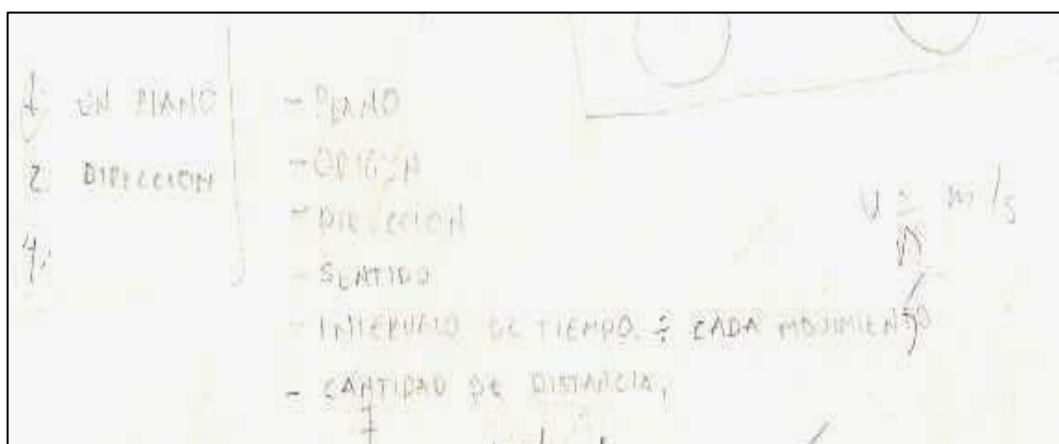 1. EN PLANO
2. DIRECCION
4.
- PLANO
- ORIGEN
- DIRECCION
- SENTIDO
- INTERVALO DE TIEMPO. CADA MOVIMIENTO
- CANTIDAD DE DISTANCIA,
m/s